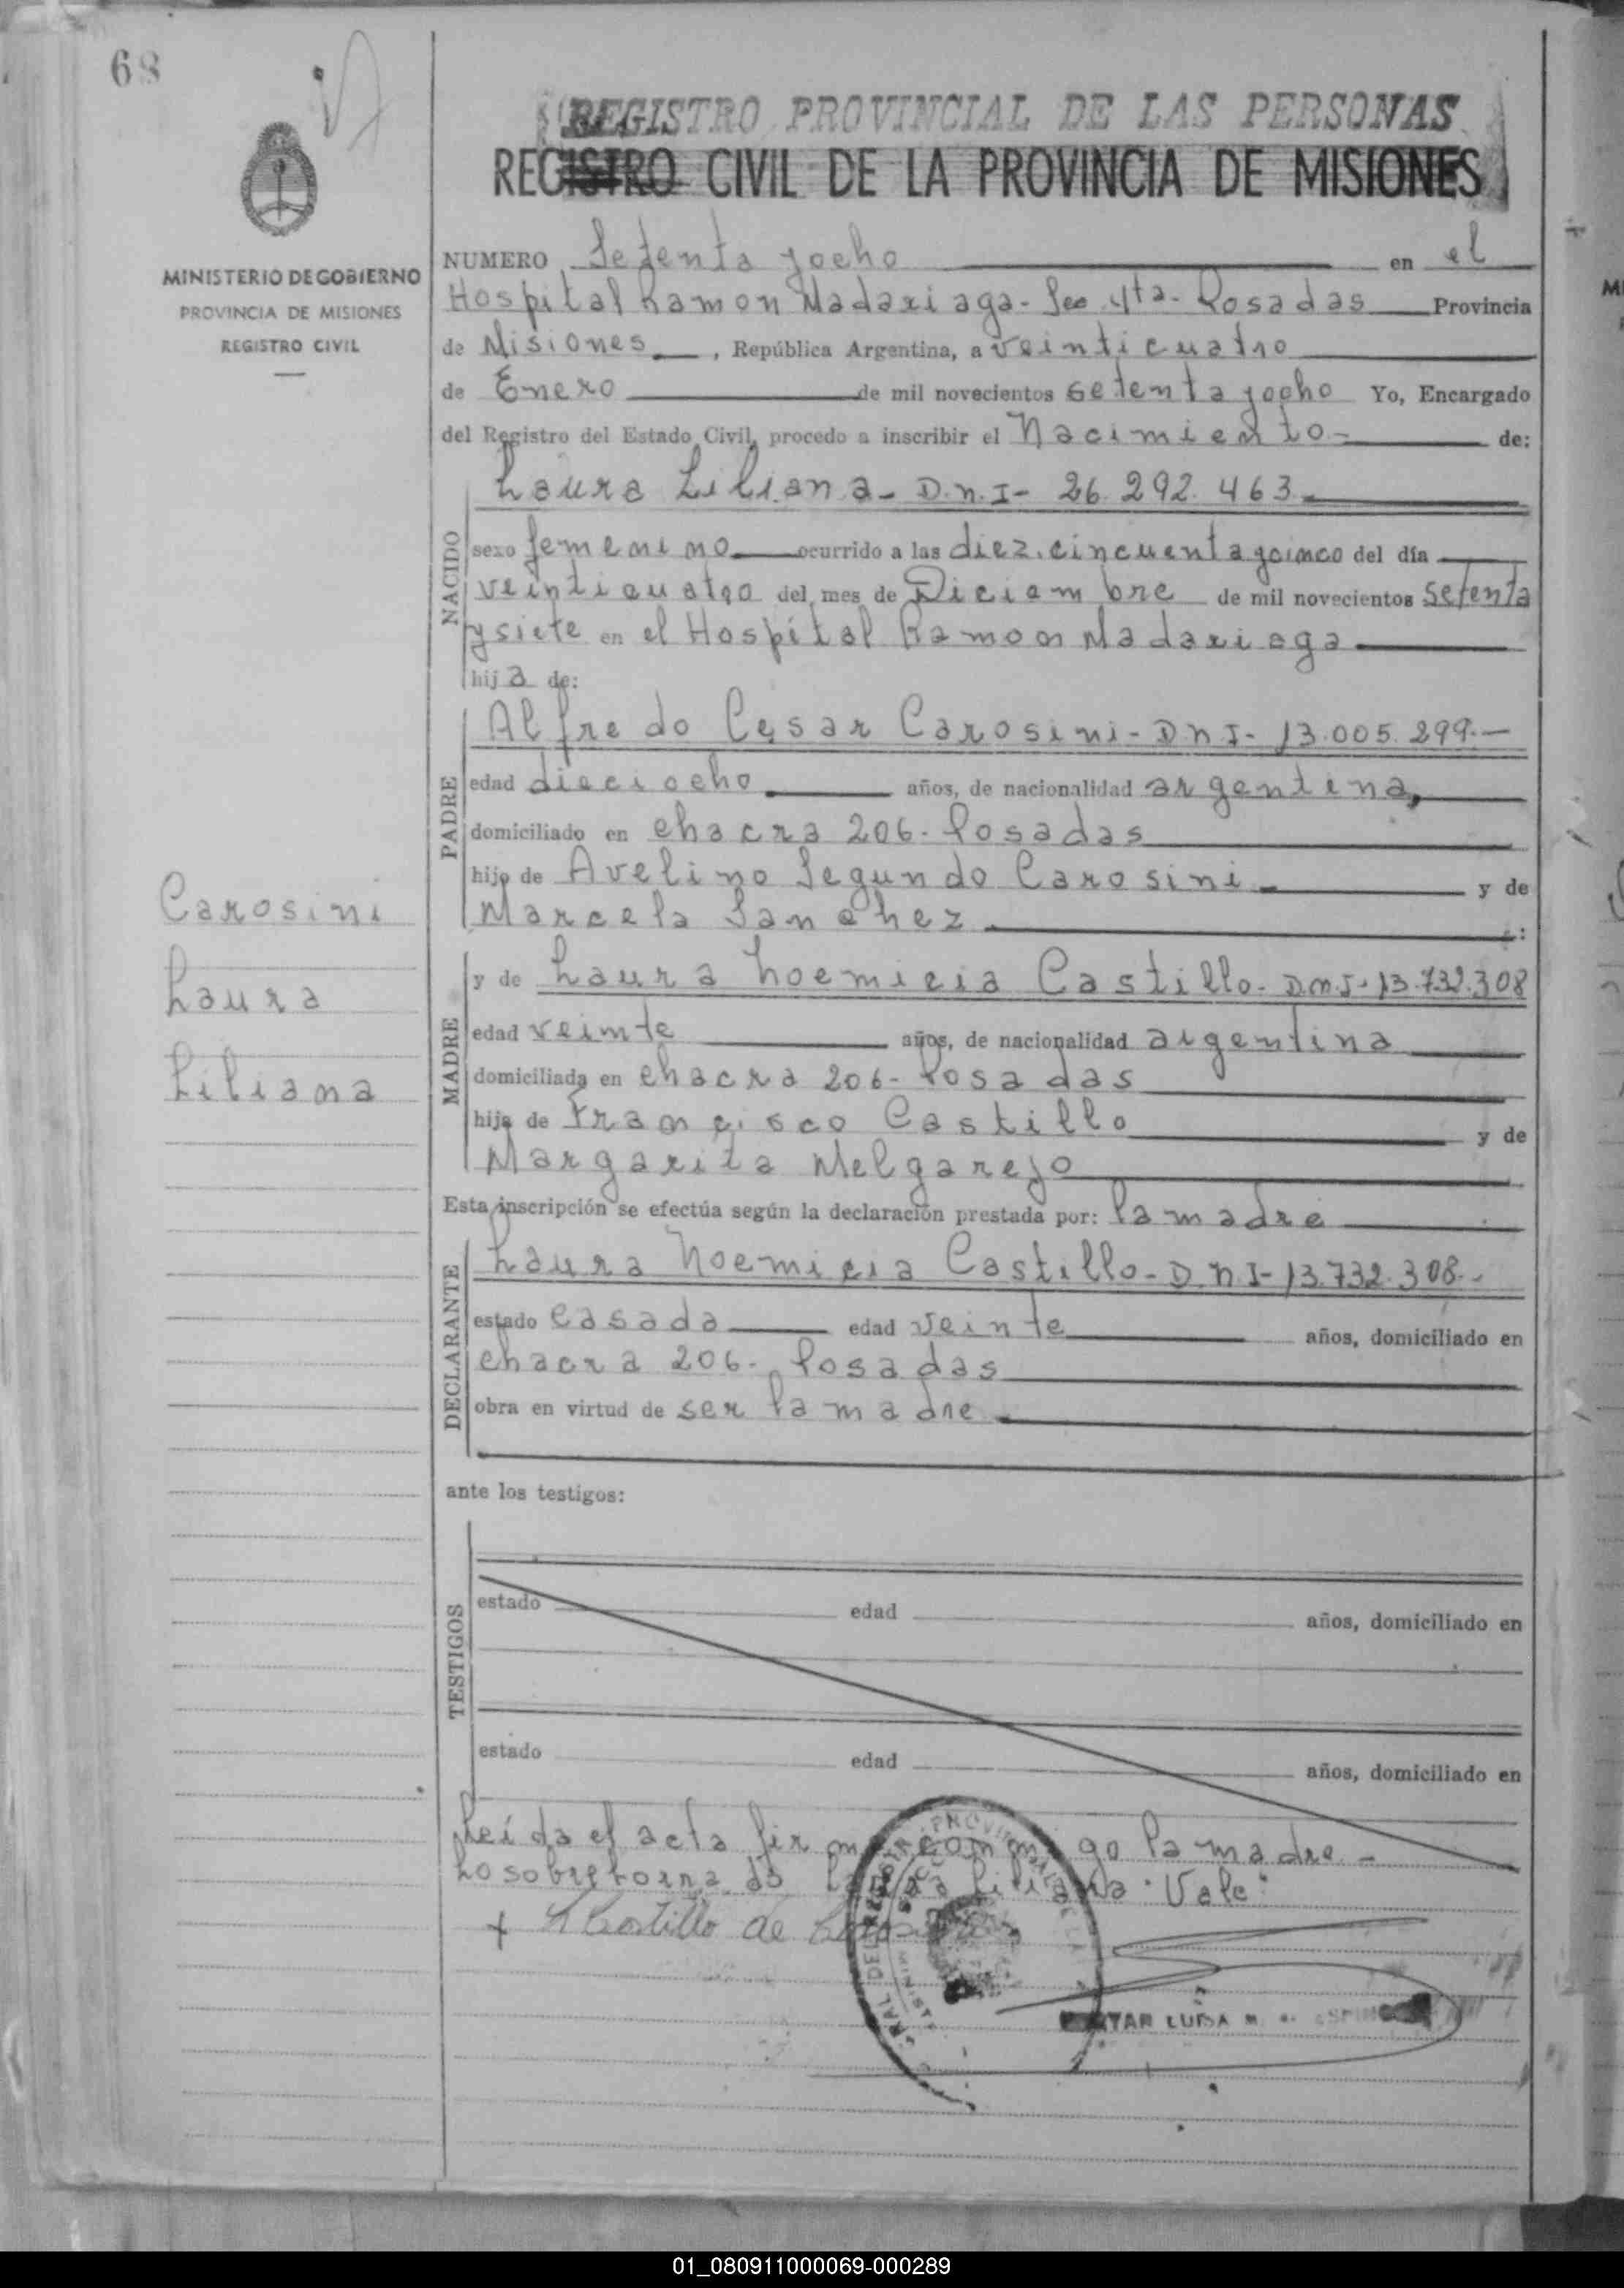 68
MINISTERIO DE GOBIERNO
PROVINCIA DE MISIONES
REGISTRO CIVIL
Carosini
Laura
Liliana
REGISTRO PROVINCIAL DE LAS PERSONAS
REGISTRO CIVIL DE LA PROVINCIA DE MISIONES
NUMERO Setenta yocho en el
Hospital Ramon Madariaga - Sec 4ta - Posadas Provincia
de Misiones, República Argentina, a veinticuatro
de Enero de mil novecientos setenta yocho Yo, Encargado
del Registro del Estado Civil, procedo a inscribir el Nacimiento - de:
NACIDO
Laura Liliana - D.N.I - 26.292.463
sexo femenino ocurrido a las diez. cincuenta ycinco del día
veinticuatro del mes de Diciembre de mil novecientos setenta
ysiete en el Hospital Ramon Madariaga
hija de:
PADRE
Alfredo Cesar Carosini - DNI - 13.005.299.-
edad dieciocho años, de nacionalidad argentina,
domiciliado en chacra 206 - Posadas
hijo de Avelino Segundo Carosini y de
Marcela Sanchez :
MADRE
y de Laura Noemicia Castillo - D.N.I - 13.732.308
edad veinte años, de nacionalidad argentina
domiciliada en chacra 206 - Posadas
hija de Francisco Castillo y de
Margarita Melgarejo
Esta inscripción se efectúa según la declaración prestada por: la madre
DECLARANTE
Laura Noemicia Castillo - D.N.I - 13.732.308.-
estado casada edad veinte años, domiciliado en
chacra 206 - Posadas
obra en virtud de ser la madre
ante los testigos:
TESTIGOS
estado edad años, domiciliado en
estado edad años, domiciliado en
Leída el acta firma conmigo la madre -
Lo sobreborrado Laura Liliana "Vale"
+ L Castillo de Carosini
LUISA
01_080911000069-000289